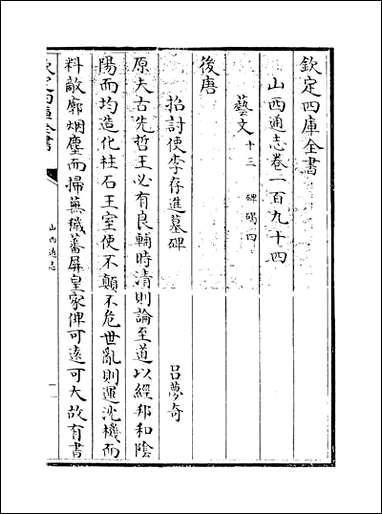 欽定四庫全書
山西通志卷一百九十四
藝文十三 碑碣四
後唐
招討使李存進墓碑 呂夢奇
原夫古先哲王必有良輔時清則論至道以經邦和陰
陽而均造化柱石王室使不顛不危世亂則運沈機而
料敵廓烟塵而掃蕪穢蕃屏皇家俾可遠可大故有書
欽定四庫全書
山西通志
一